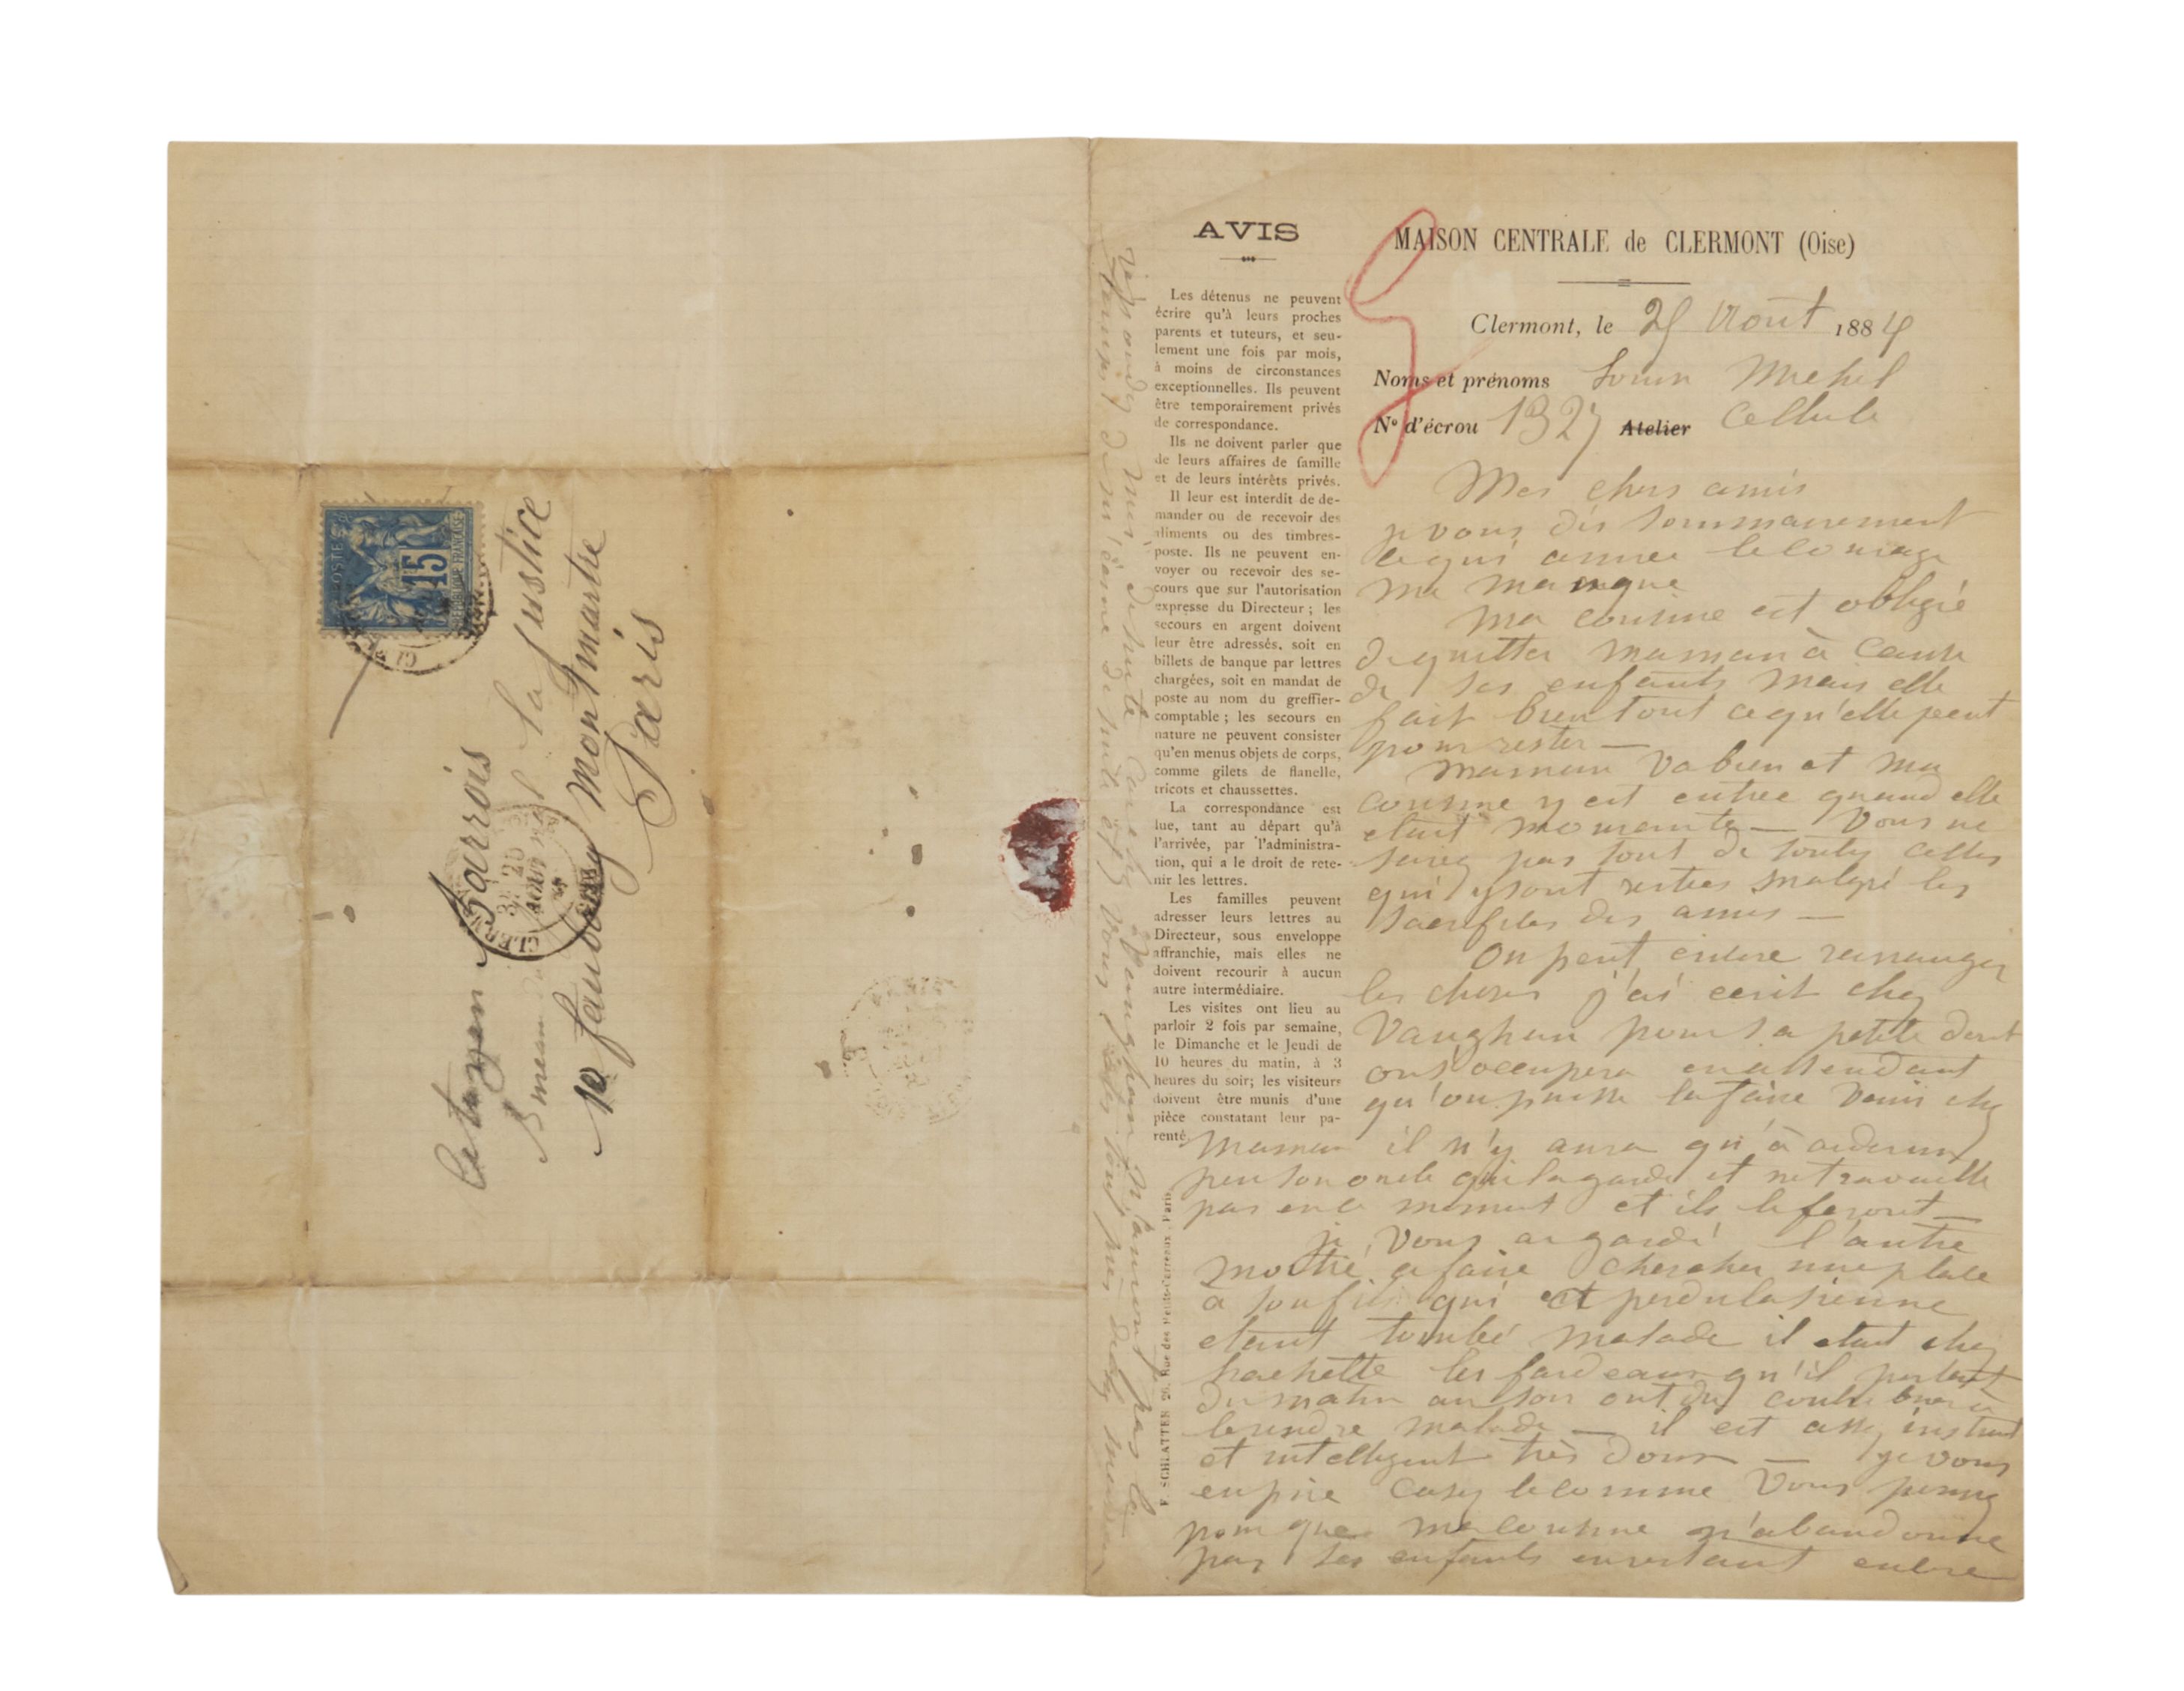 Citoyen Barrois
la Justice
10 faubourg Montmartre
Paris
POSTE
15
RÉPUBLIQUE FRANÇAISE
AVIS
Les détenus ne peuvent
écrire qu'à leurs proches
parents et tuteurs, et seu-
lement une fois par mois,
à moins de circonstances
exceptionnelles. Ils peuvent
être temporairement privés
de correspondance.
Ils ne doivent parler que
de leurs affaires de famille
et de leurs intérêts privés.
Il leur est interdit de de-
mander ou de recevoir des
aliments ou des timbres-
poste. Ils ne peuvent en-
voyer ou recevoir des se-
cours que sur l'autorisation
expresse du Directeur ; les
secours en argent doivent
leur être adressés, soit en
billets de banque par lettres
chargées, soit en mandat de
poste au nom du greffier-
comptable ; les secours en
nature ne peuvent consister
qu'en menus objets de corps,
comme gilets de flanelle,
tricots et chaussettes.
La correspondance est
lue, tant au départ qu'à
l'arrivée, par l'administra-
tion, qui a le droit de rete-
nir les lettres.
Les familles peuvent
adresser leurs lettres au
Directeur, sous enveloppe
affranchie, mais elles ne
doivent recourir à aucun
autre intermédiaire.
Les visites ont lieu au
parloir 2 fois par semaine,
le Dimanche et le Jeudi de
10 heures du matin, à 3
heures du soir; les visiteurs
doivent être munis d'une
pièce constatant leur pa-
renté.
F. SCHLATTER 26, Rue des Petits-Carreaux, Paris
MAISON CENTRALE de CLERMONT (Oise)
Clermont, le 25 Aout 1884
Noms et prénoms Louise Michel
N° d'écrou 1327 Atelier Cellule
Mes chers amis
je vous dis sommairement
ce qui arrive le courage
me manque
Ma cousine est obligée
de quitter maman à cause
de ses enfants mais elle
fait bien tout ce qu'elle peut
pour rester —
Maman va bien et ma
cousine y est entrée quand elle
était mourante — Vous ne
savez pas tout de toutes celles
qui y sont restées malgré les
sacrifices des amis —
On peut encore rarranger
les choses j'ai écrit chez
Vaughan pour sa petite dont
on s'occupera en attendant
qu'on puisse la faire venir chez
maman il n'y aura qu'à aider un
peu son oncle qui la garde et ne travaille
pas en ce moment et ils le feront —
je vous ai gardé l'autre
moitié à faire chercher une place
à son fils qui a perdu la sienne
étant tombé malade il était chez
hachette les fardeaux qu'il portait
du matin au soir ont du contribuer à
le rendre malade — il est assez instruit
et intelligent très doux — je vous
en prie casez le comme vous pourrez
pour que ma cousine n'abandonne
pas ses enfants en restant encore